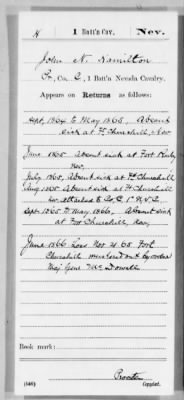 H 1 Batt'n Cav. Nev.
John N. Hamilton
Pr., Co. C, 1 Batt'n Nevada Cavalry.
Appears on Returns as follows:
Sept, 1864 to May 1865, Absent
sick at Ft Churchill, Nev
June 1865 Absent sick at Fort Ruby,
Nev.
July 1865, Absent sick at Ft Churchill
Aug 1865 Absent sick at Ft Churchill
Nev. attached to Co. C, 1" N.V.C.
Sept. 1865 to May 1866, Absent sick
at Fort Churchill, Nev,
June 1866 Loss Nov 21 65 Fort
Churchill mustered out by order
Maj Genl McDowell
Book mark:
(546) Copyist.